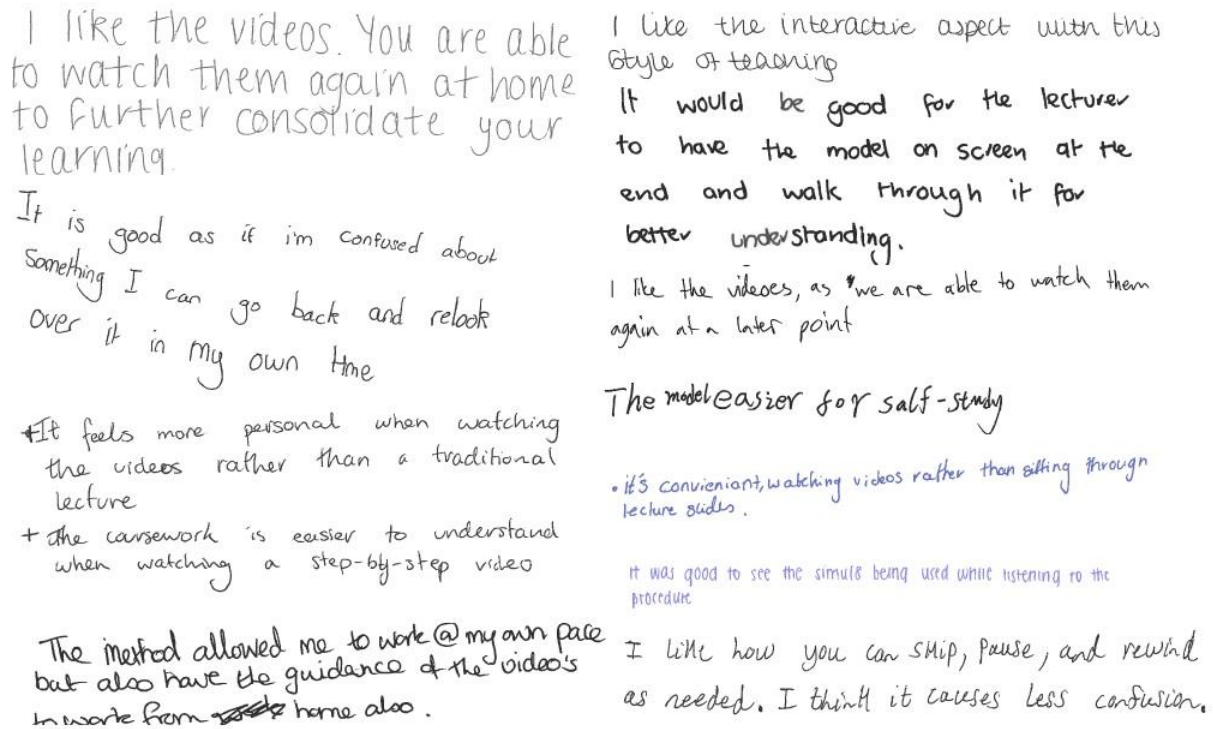 I like the videos. You are able
to watch them again at home
to further consolidate your
learning.
It is good as if i'm confused about
something I can go back and relook
over it in my own time
+It feels more personal when watching
the videos rather than a traditional
lecture
+ The coursework is easier to understand
when watching a step-by-step video
The method allowed me to work @ my own pace
but also have the guidance of the video's
to work from home also.
I like the interactive aspect with this
style of teaching
It would be good for the lecturer
to have the model on screen at the
end and walk through it for
better understanding.
I like the videoes, as we are able to watch them
again at a later point
The model easier for salf-study
• it's convieniant, watching videos rather than sitting through
lecture slides.
It was good to see the simul8 being used while listening to the
procedure
I like how you can skip, pause, and rewind
as needed. I think it causes less confusion.